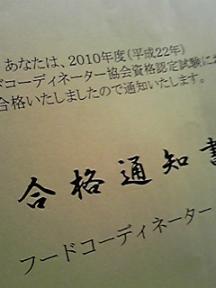 あなたは、2010年度(平成22年)
ドコーディネーター協会資格認定試験にお
合格いたしましたので通知いたします。
合格通知書
フードコーディネーター